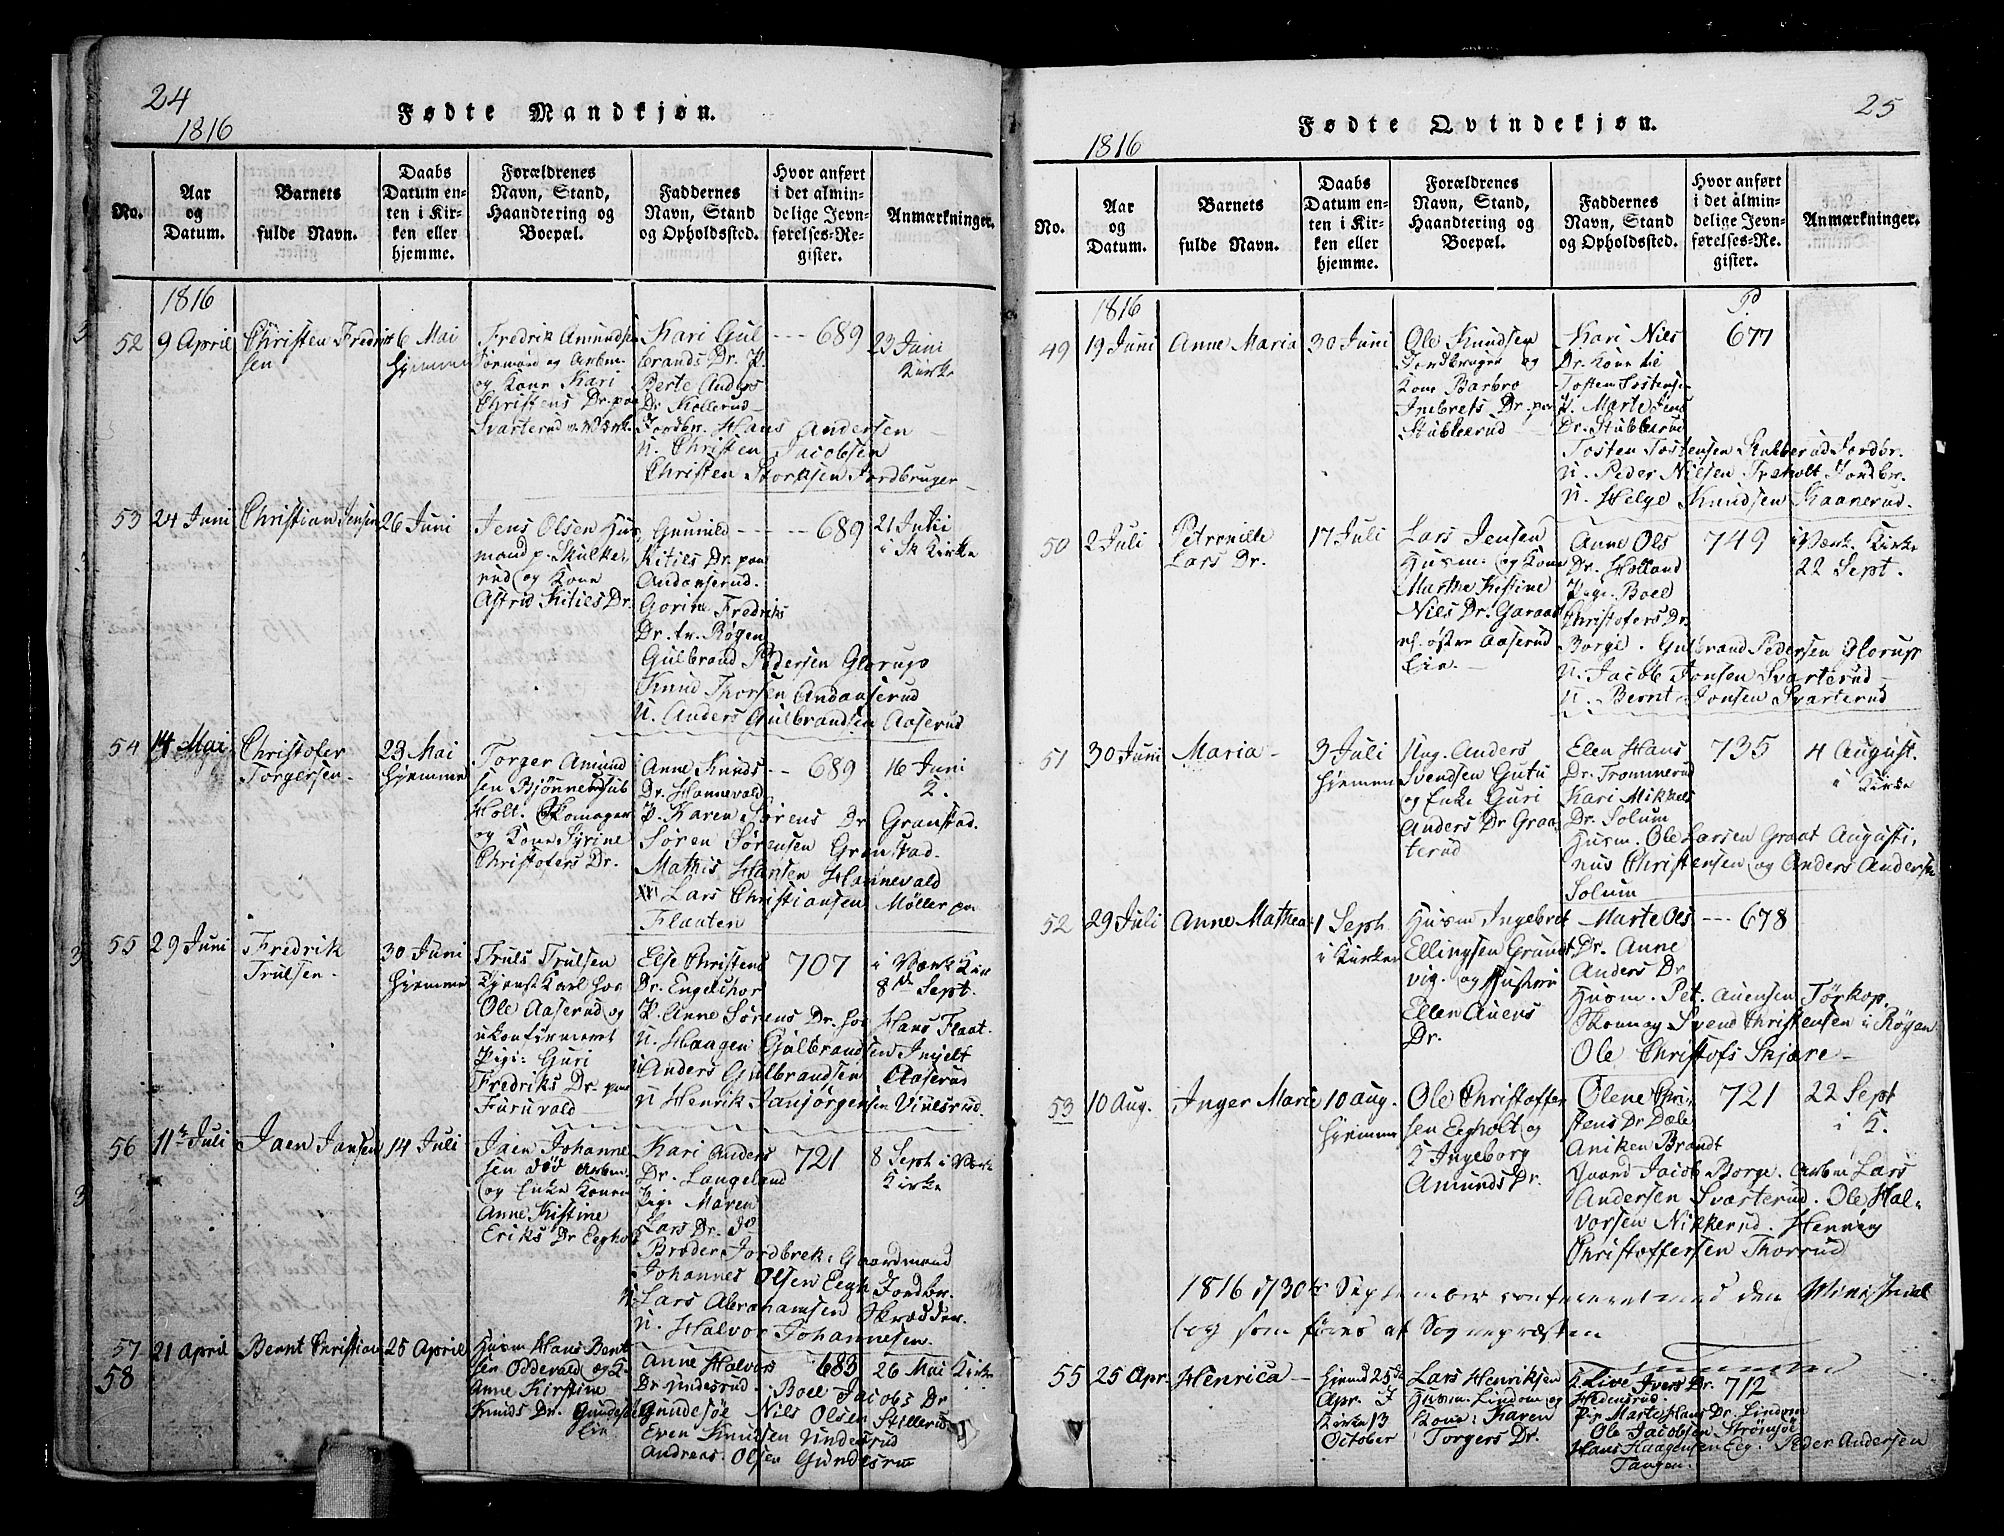 24
1816
Fødte Mandkjøn.
No.
Aar og Datum.
Barnets fulde Navn.
Daabs Datum enten i Kirken eller hjemme.
Forældrenes Navn, Stand, Haandtering og Boepæl.
Faddernes Navn, Stand og Opholdssted.
Hvor anført i det almindelige Jevnførelses-Register.
Anmærkninger.
1816
52
9 April
Christen Fredrik
sen
6 Mai
hjemme
Fredrik Amundsen
og Kone Kari
Christens Dr. paa
Svarterud
Kari Gul
brands Dr. P.
Berte Anders
Dr. Kollerud
Jordbr. Hans Andersen
U. Christen Jacobsen
Christen Jordbruger
689
23 Juni
Kirke
53
24 Juni
Christian Jensen
26 Juni
Jens Olsen Hus
mand p. Skulke
rud og Kone
Astrid Kitils Dr.
Gunnild
Kitils Dr. paa
Andanserud.
Gorine Fredriks
Dr. fr. Bøgen
Gulbrand Pedersen Glorup
Knud Thorsen Andanserud
U. Anders Gulbrandsen Aaserud
689
21 Julii
i Sk Kirke
54
14 Mai
Christofer
Torgersen
23 Mai
hjemme
Torger Amund
sen
Holt. Skomager
og Kone Syrine
Christofers Dr.
Anne Knuds
Dr. Hannevald
P. Karen Sørens Dr Granstad.
Søren Sørensen Granstad.
Mathis Hansen Hannevald
Lars Christiansen Møller paa
Flaaten
689
16 Juni
2.
55
29 Juni
Fredrik
Trulsen
30 Juni
hjemme
Truls Trulsen
Tjenst Karl hos
Ole Aaserud og
ukonfirmeret
Pige: Guri
Fredriks Dr. paa
Furuvald
Else Christens
Dr. Engelshor
P. Anne Sørens Dr. hos Hans Flaat.
U. Haagen Gulbrandsen
Anders Gulbrandsen Aaserud
U Henrik Janjørgensen
707
i Værk Kir
8de Sept.
56
11te Juli
Jaen Jansen
14 Juli
Jaen Johanne
sen død Arbm
og Enke Konen
Anne Kistine
Eriks Dr Eegholt
Kari Anders
Dr. Langeland
Pige Maren
Lars Dr.
Brøder Jordbrek. Gaardmand
Johannes Olsen Eegh Jordbr.
Lars Abrahamsen Skrædder
U. Halvor Johannesen.
721
8 Sept i Værk
Kirke
57
58
21 April
Bernt Christian
25 April
Husm Hans Bent
sen Oddevald og K
Anne Kirstine
Knuds Dr.
Anne Halvors
Dr Undesrud. Boel Jacobs Dr
Nils Olsen Stillerud
Even Knudsen Undesrud
Andreas Olsen
683
26 Mai Kirke
25
1816
Fødte Qvindekjøn.
No.
Aar og Datum.
Barnets fulde Navn.
Daabs Datum enten i Kirken eller hjemme.
Forældrenes Navn, Stand, Haandtering og Boepæl.
Faddernes Navn, Stand og Opholdssted.
Hvor anført i det almindelige Jevnførelses-Register.
Anmærkninger.
1816
49
19 Juni
Anne Maria
30 Juni
Ole Knudsen
Jordbruger og
Kone Barbro
Inebrets Dr. paa
Stubberud
Kari Nils
Dr. Kone til
Tosten Tostensen
P. Marte Jens
Dr. Stubberud
Tosten Tostensen Stubberud Jordbr.
U. Peder Nilsen Jordbr.
U. Helge Knudsen Kaanerud.
677
50
2 Juli
Petrenille
Lars Dr.
17 Juli
Lars Jensen
Husm. og Kone
Marthe Kistine
Nils Dr. Garaas
østre Aaserud
Eie.
Anne Ols
Dr. Holland
Pige. Boel
Christofers Dr.
Borge. Gulbrand Pedersen Glorup
U. Jacob Jonsen Svarterud
U. Bernt Jonsen Svarterud
749
i Værk. Kirke
22 Sept.
51
30 Juni
Maria
3 Juli
hjemme
Ung. Anders
Svendsen Gutu
og Enke Guri
Anders Dr Graa
terud
Elen Hans
Dr. Trommerud
Kari Mikkels
Dr. Solum
Husm. Ole Larsen Graat Augusti,
nus Christensen og Anders Anders
Solum
735
4 August.
i Kirke
52
29 Juli
Anne Mathea
1 Sept
i Kirken
Husm Ingebret
Ellingsen Grundt
vig. og Hustru
Ellen Auens
Dr.
Marte Ols
Dr. Anne
Anders Dr
Husm. Pet. Auensen Tørkop,
Skomag Svend Christensen i Røgan
Ole Christofs Skjære
678
53
10 Aug.
Inger Marie
10 aug.
hjemme
Ole Christoffer
sen Eegholt og
K Ingeborg
Amunds Dr.
Olene Chri,
stens Dr Dæle
Aniken Brandt
Gaard Jacob Borge. Arbm Lars
Andersen Svarterud. Ole Hal-
vorsen Nikkerud. Hennig
Christoffersen Thorrud
721
22 Sept
i K.
1816 d 30te September confereret med den Ministerial
bog som føres af Sognepræsten
55
25 Apr.
Henrica
hjemd 25de
Apr. I
Kirke 13
October
Lars Henriksen
Husm. Lindom og
Kone: Karen
Torgers Dr.
K. Live Ivers Dr.
Hedensrud.
Pig Marte Hans Dr. Lindom
Ole Jacobsen Strømsöe
Hans Haagensen Eeg. Peder Andersen
Tangen.
712